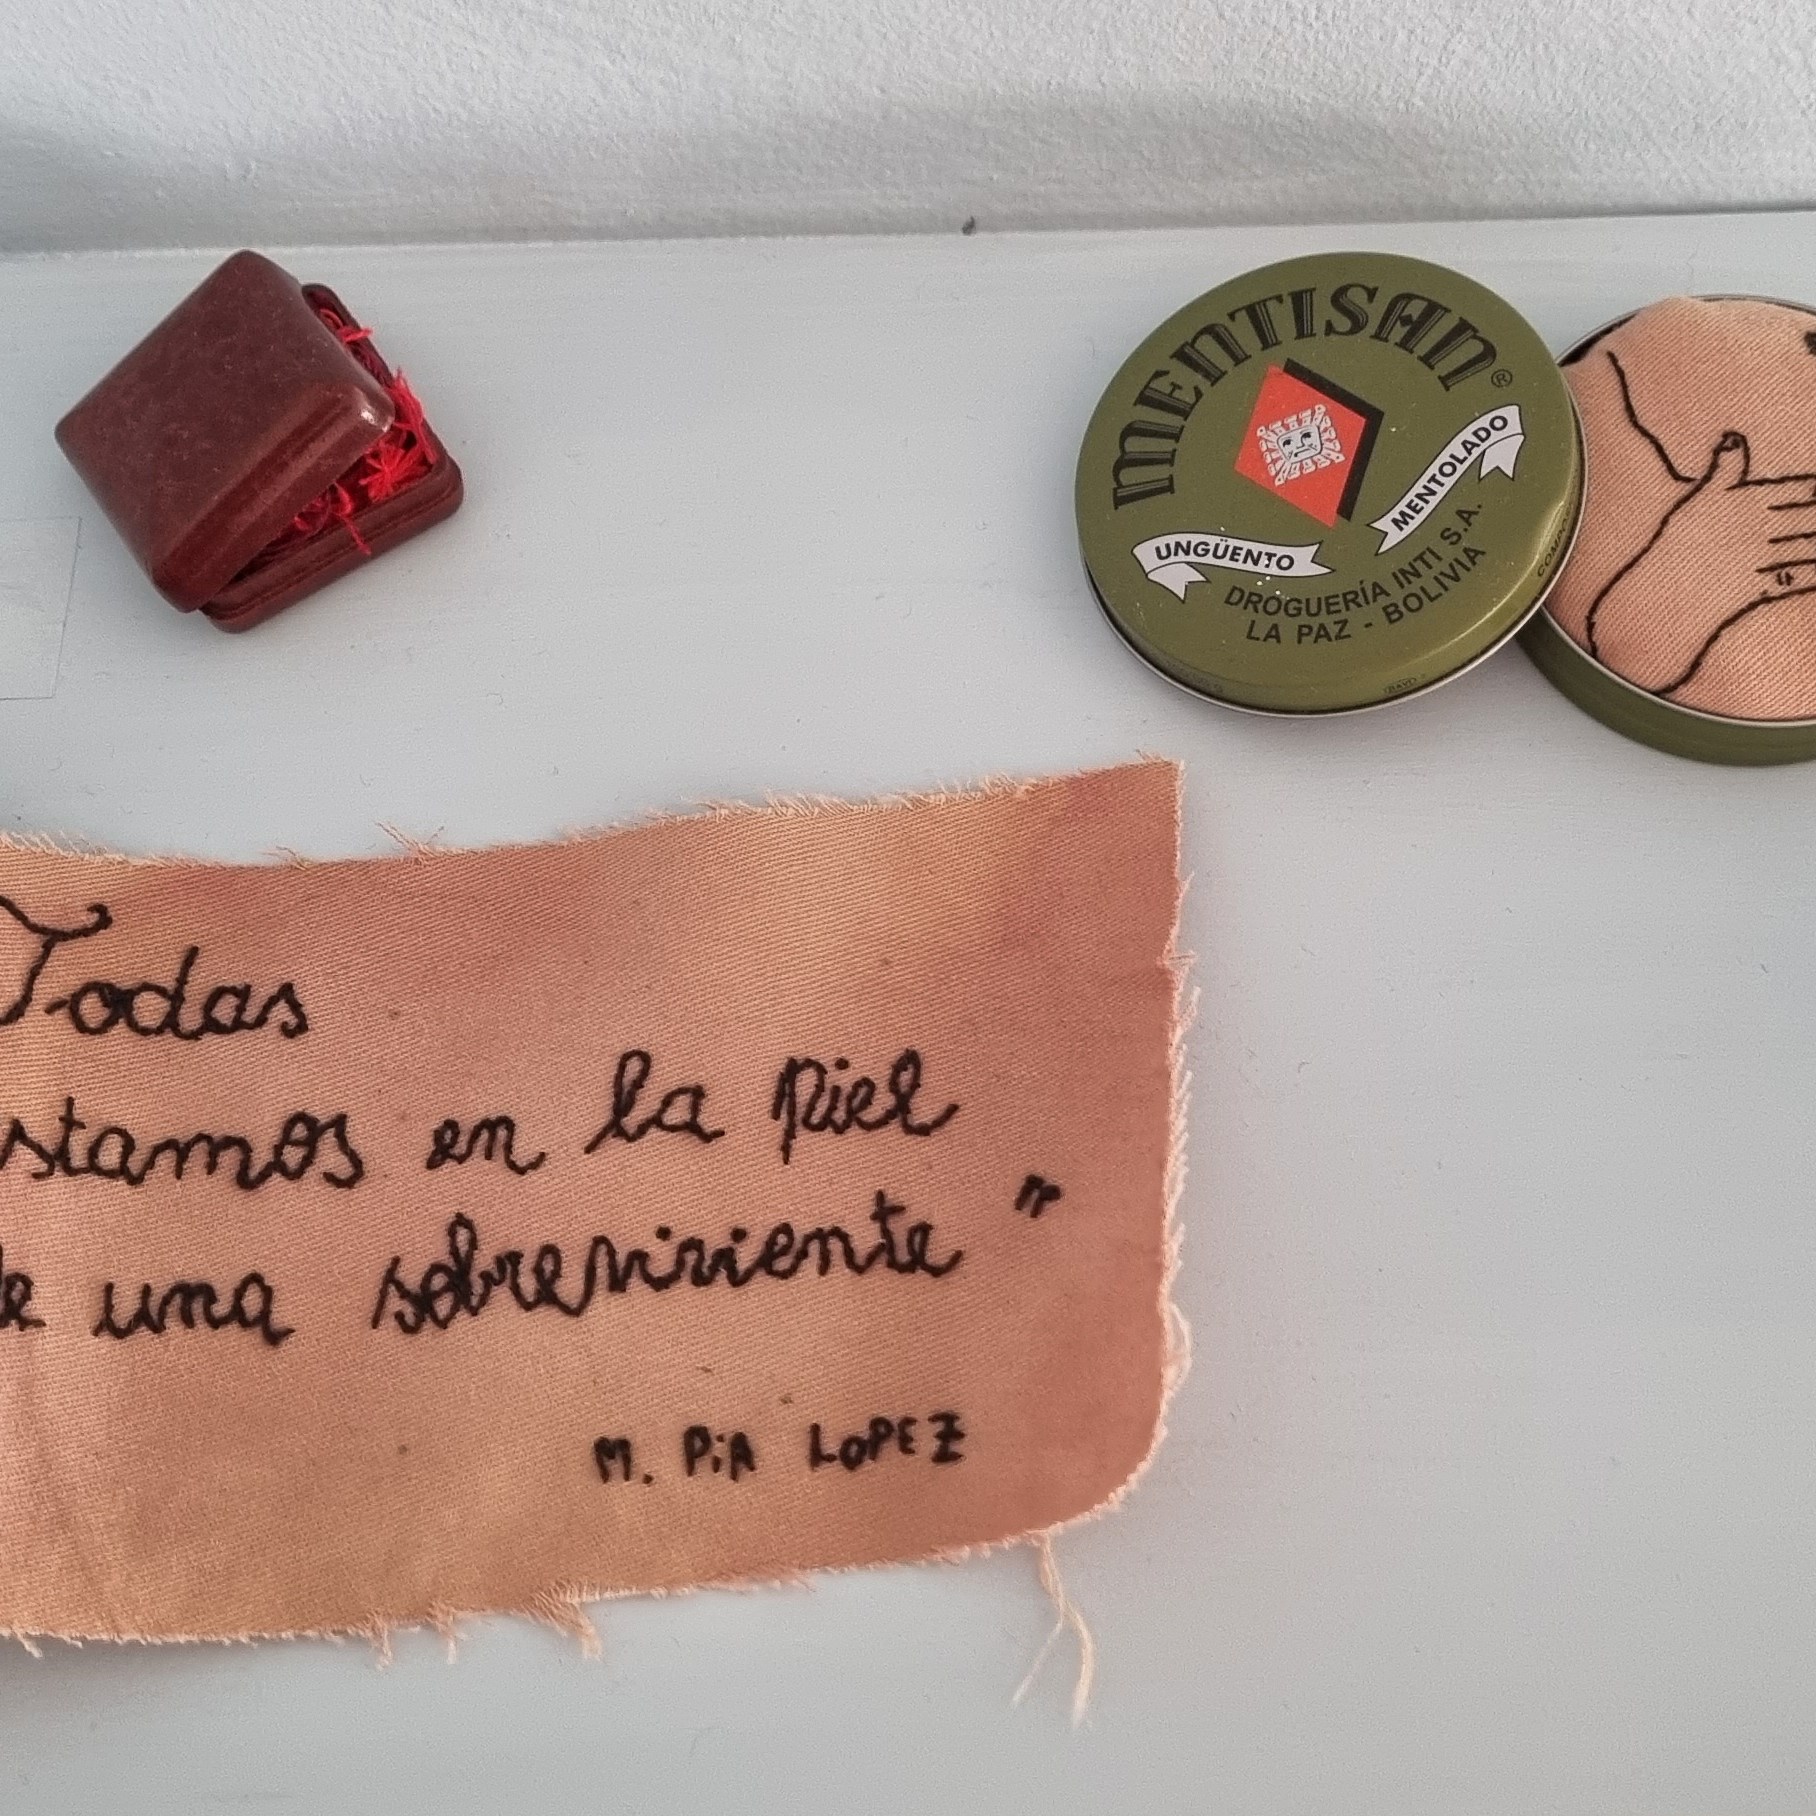 MENTISAN®
UNGÜENTO
MENTOLADO
DROGUERÍA INTI S.A.
LA PAZ - BOLIVIA
Todas
stamos en la piel
de una sobreviviente"
M. PiA LOPEZ